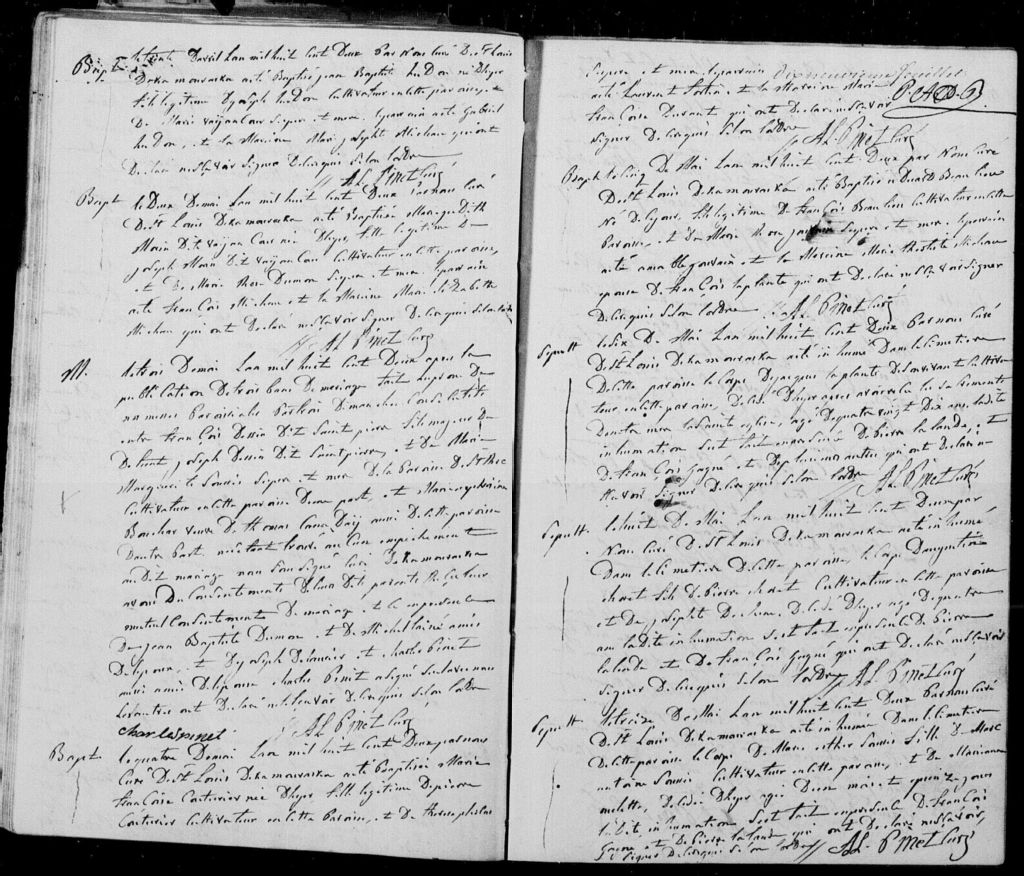 Bapt Le trente Davril Lan mil huit Cent Deux Par Nous Curé De St Louis
De Kamouraska a eté Baptisé jean Baptiste hudon né Dhyer
fils legitime De joseph hudon Cultivateur en cette paroisse, et
De Marie voijan Son Epouse et mere, Le parain a eté Gabriel
hudon, et la Maraine Marie josepht Michau qui ont
Declaré ne Scavoir Signer De Ce requis Selon Lordre
A L Pinet Curé
Bapt Le Deux De mai Lan mil huit Cent Deux Par nous Curé
De St Louis De Kamouraska a eté Baptisée Marie judith
Morin Dit valjean née Dhyer, fille legitime De
joseph Morin Dit Cultivateur en cette paroisse,
et De Marie Rose Dumon Son Epouse et mere, Le parain
a eté francois Michau et la Maraine Marie Elizabette
Michau qui ont Declaré ne Scavoir Signer De Ce requis Selon lordre
A L Pinet Curé
M. Le trois De mai Lan mil huit Cent Deux apres la
publication De trois bans De mariage fait au prone De
nos messes Paroissiales Par trois Dimanches Consecutifs
entre francois Dessin Dit Saint pierre fils majeur De
Defunt joseph Dessin Dit Saint pierre, et De Marie
Marguerite Souris Son Epouse et mere De la Paroisse De St Roc
Cultivateur en cette paroisse Dune part, et Marie
Bouchar veuve De thomas aussi De cette paroisse
Dautre Part ne S'etant trouvé aucun empechement
au Dit mariage nous Sous Signé Curé De Kamouraska
avons Du Consentement De leurs Dits parents Recu leur
mutuel Consentement De mariage et ce en presence
De jean Baptiste Dumon, et De Michel lainé amis
De lepoux, et De joseph et charles Pinet
aussi amis De lepouse Charles Pinet a Signé avec nous
Les autres ont Declaré ne Scavoir De Ce requis Selon lordre
Charles pinet A L Pinet Curé
Bapt Le quatre De mai Lan mil huit Cent Deux par nous
Curé De St Louis De Kamouraska a eté Baptisée Marie
francoise Couturier née Dhyer fille legitime De pierre
Couturier Cultivateur en cette Paroisse, et De therese pelletier
Dixneuvieme feuillet
Epouse et mere, Le parain
a eté Laurent et la Maraine Marie
francoise Durant qui ont Declaré ne Scavoir
Signer De Ce requis Selon lordre
A L Pinet Curé
Bapt Le Cinq De Mai Lan mil huit Cent Deux par Nous Curé
De St Louis De Kamouraska a eté Baptisé Beaulieu
Né De Ce jour, fils legitime De francois Beaulieu Cultivateur en cette
Paroisse, et De Marie Rose Son Epouse et mere, Le parain
a eté amable et la Maraine Marie Michau
epouse De francois laplante qui ont Declaré ne Scavoir Signer
De Ce requis Selon lordre A L Pinet Curé
Sepult Le Six De Mai Lan mil huit Cent Deux Par nous Curé
De St Louis De Kamouraska a eté inhumé Dans le Cimetiere
De Cette paroisse le Corps De jacques laplante De Son vivant Cultiva
teur en cette paroisse, Decedé Dhyer apres avoir recu les Sacrements
De notre mere la Sainte eglise, agé De quatre vingt Dix ans, la dite
inhumation S'est fait en presence De Pierre lalande, et
De francois Gagné et De plusieurs autres qui ont Declaré
ne Scavoir Signer De Ce requis Selon lordre A L Pinet Curé
Sepult Le huit De Mai Lan mil huit Cent Deux par
Nous Curé De St Louis De Kamouraska a eté inhumé
Dans le Cimetiere De Cette paroisse, le Corps Daugustin
fils De Pierre Cultivateur en Cette paroisse
et De josephte Decedé Dhyer agé De quatre
ans la Dite inhumation S'est fait en presence De Pierre
lalande et De francois Gagné qui ont Declaré ne Scavoir
Signer De Ce requis Selon lordre A L Pinet Curé
Sepult Le treize De Mai Lan mil huit Cent Deux Par nous Curé
De St Louis De Kamouraska a eté inhumée Dans le Cimetiere
De Cette paroisse le Corps De Marie esther Souris fille De Marc
antoine Souris Cultivateur en cette paroisse, et De Marianne
Decedée Dhyer agée Deux mois et quinze jours
la Dite inhumation S'est fait en presence De francois
Gagné et De Pierre laland qui ont Declaré ne Scavoir
Signer De Ce requis Selon lordre A L Pinet Curé